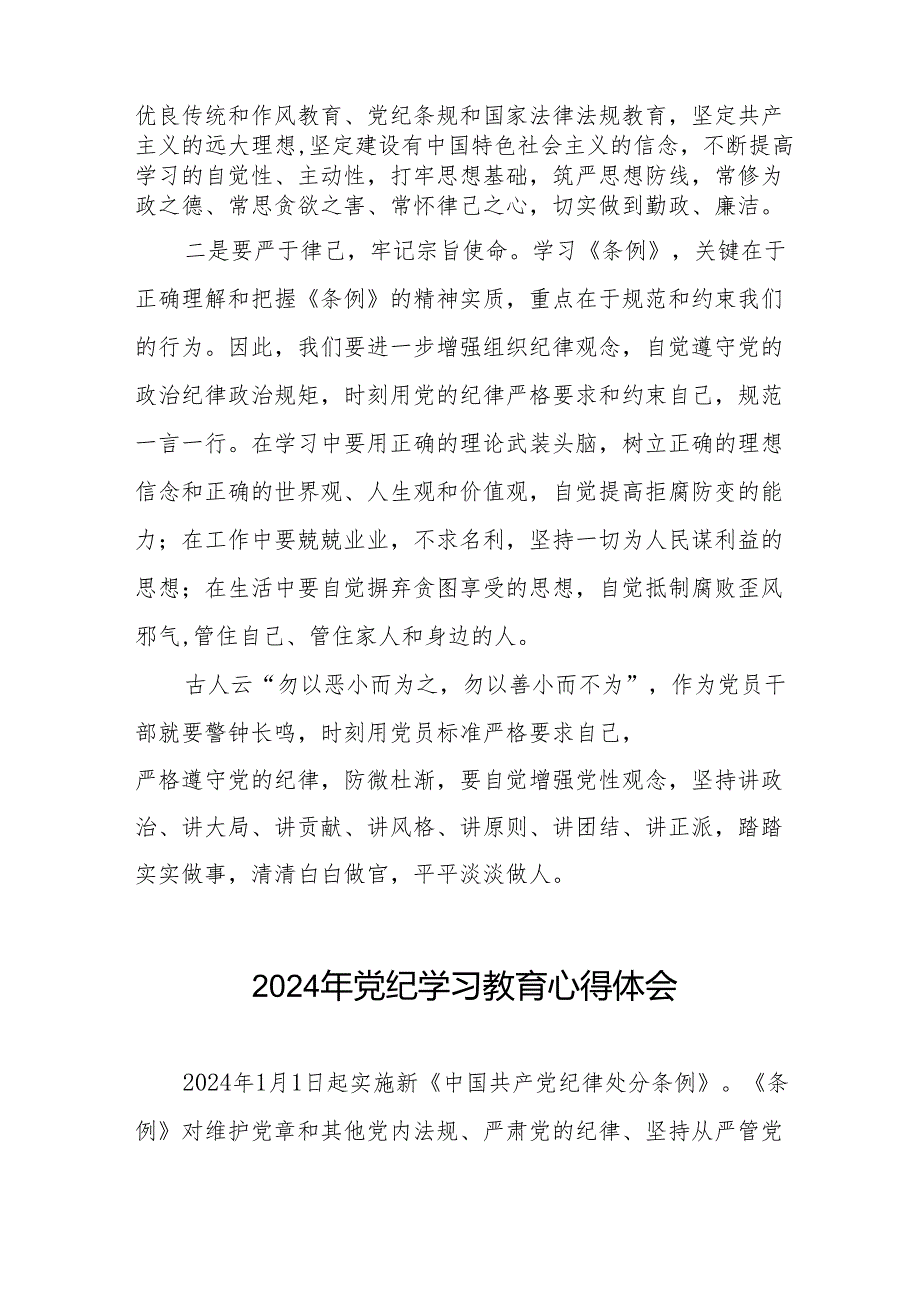 优良传统和作风教育、党纪条规和国家法律法规教育，坚定共产
主义的远大理想,坚定建设有中国特色社会主义的信念，不断提高
学习的自觉性、主动性，打牢思想基础，筑严思想防线，常修为
政之德、常思贪欲之害、常怀律己之心，切实做到勤政、廉洁。
二是要严于律己，牢记宗旨使命。学习《条例》，关键在于
正确理解和把握《条例》的精神实质，重点在于规范和约束我们
的行为。因此，我们要进一步增强组织纪律观念，自觉遵守党的
政治纪律政治规矩，时刻用党的纪律严格要求和约束自己，规范
一言一行。在学习中要用正确的理论武装头脑，树立正确的理想
信念和正确的世界观、人生观和价值观，自觉提高拒腐防变的能
力；在工作中要兢兢业业，不求名利，坚持一切为人民谋利益的
思想；在生活中要自觉摒弃贪图享受的思想，自觉抵制腐败歪风
邪气,管住自己、管住家人和身边的人。
古人云“勿以恶小而为之，勿以善小而不为”，作为党员干
部就要警钟长鸣，时刻用党员标准严格要求自己，
严格遵守党的纪律，防微杜渐，要自觉增强党性观念，坚持讲政
治、讲大局、讲贡献、讲风格、讲原则、讲团结、讲正派，踏踏
实实做事，清清白白做官，平平淡淡做人。
2024年党纪学习教育心得体会
2024年1月1日起实施新《中国共产党纪律处分条例》。《条
例》对维护党章和其他党内法规、严肃党的纪律、坚持从严管党